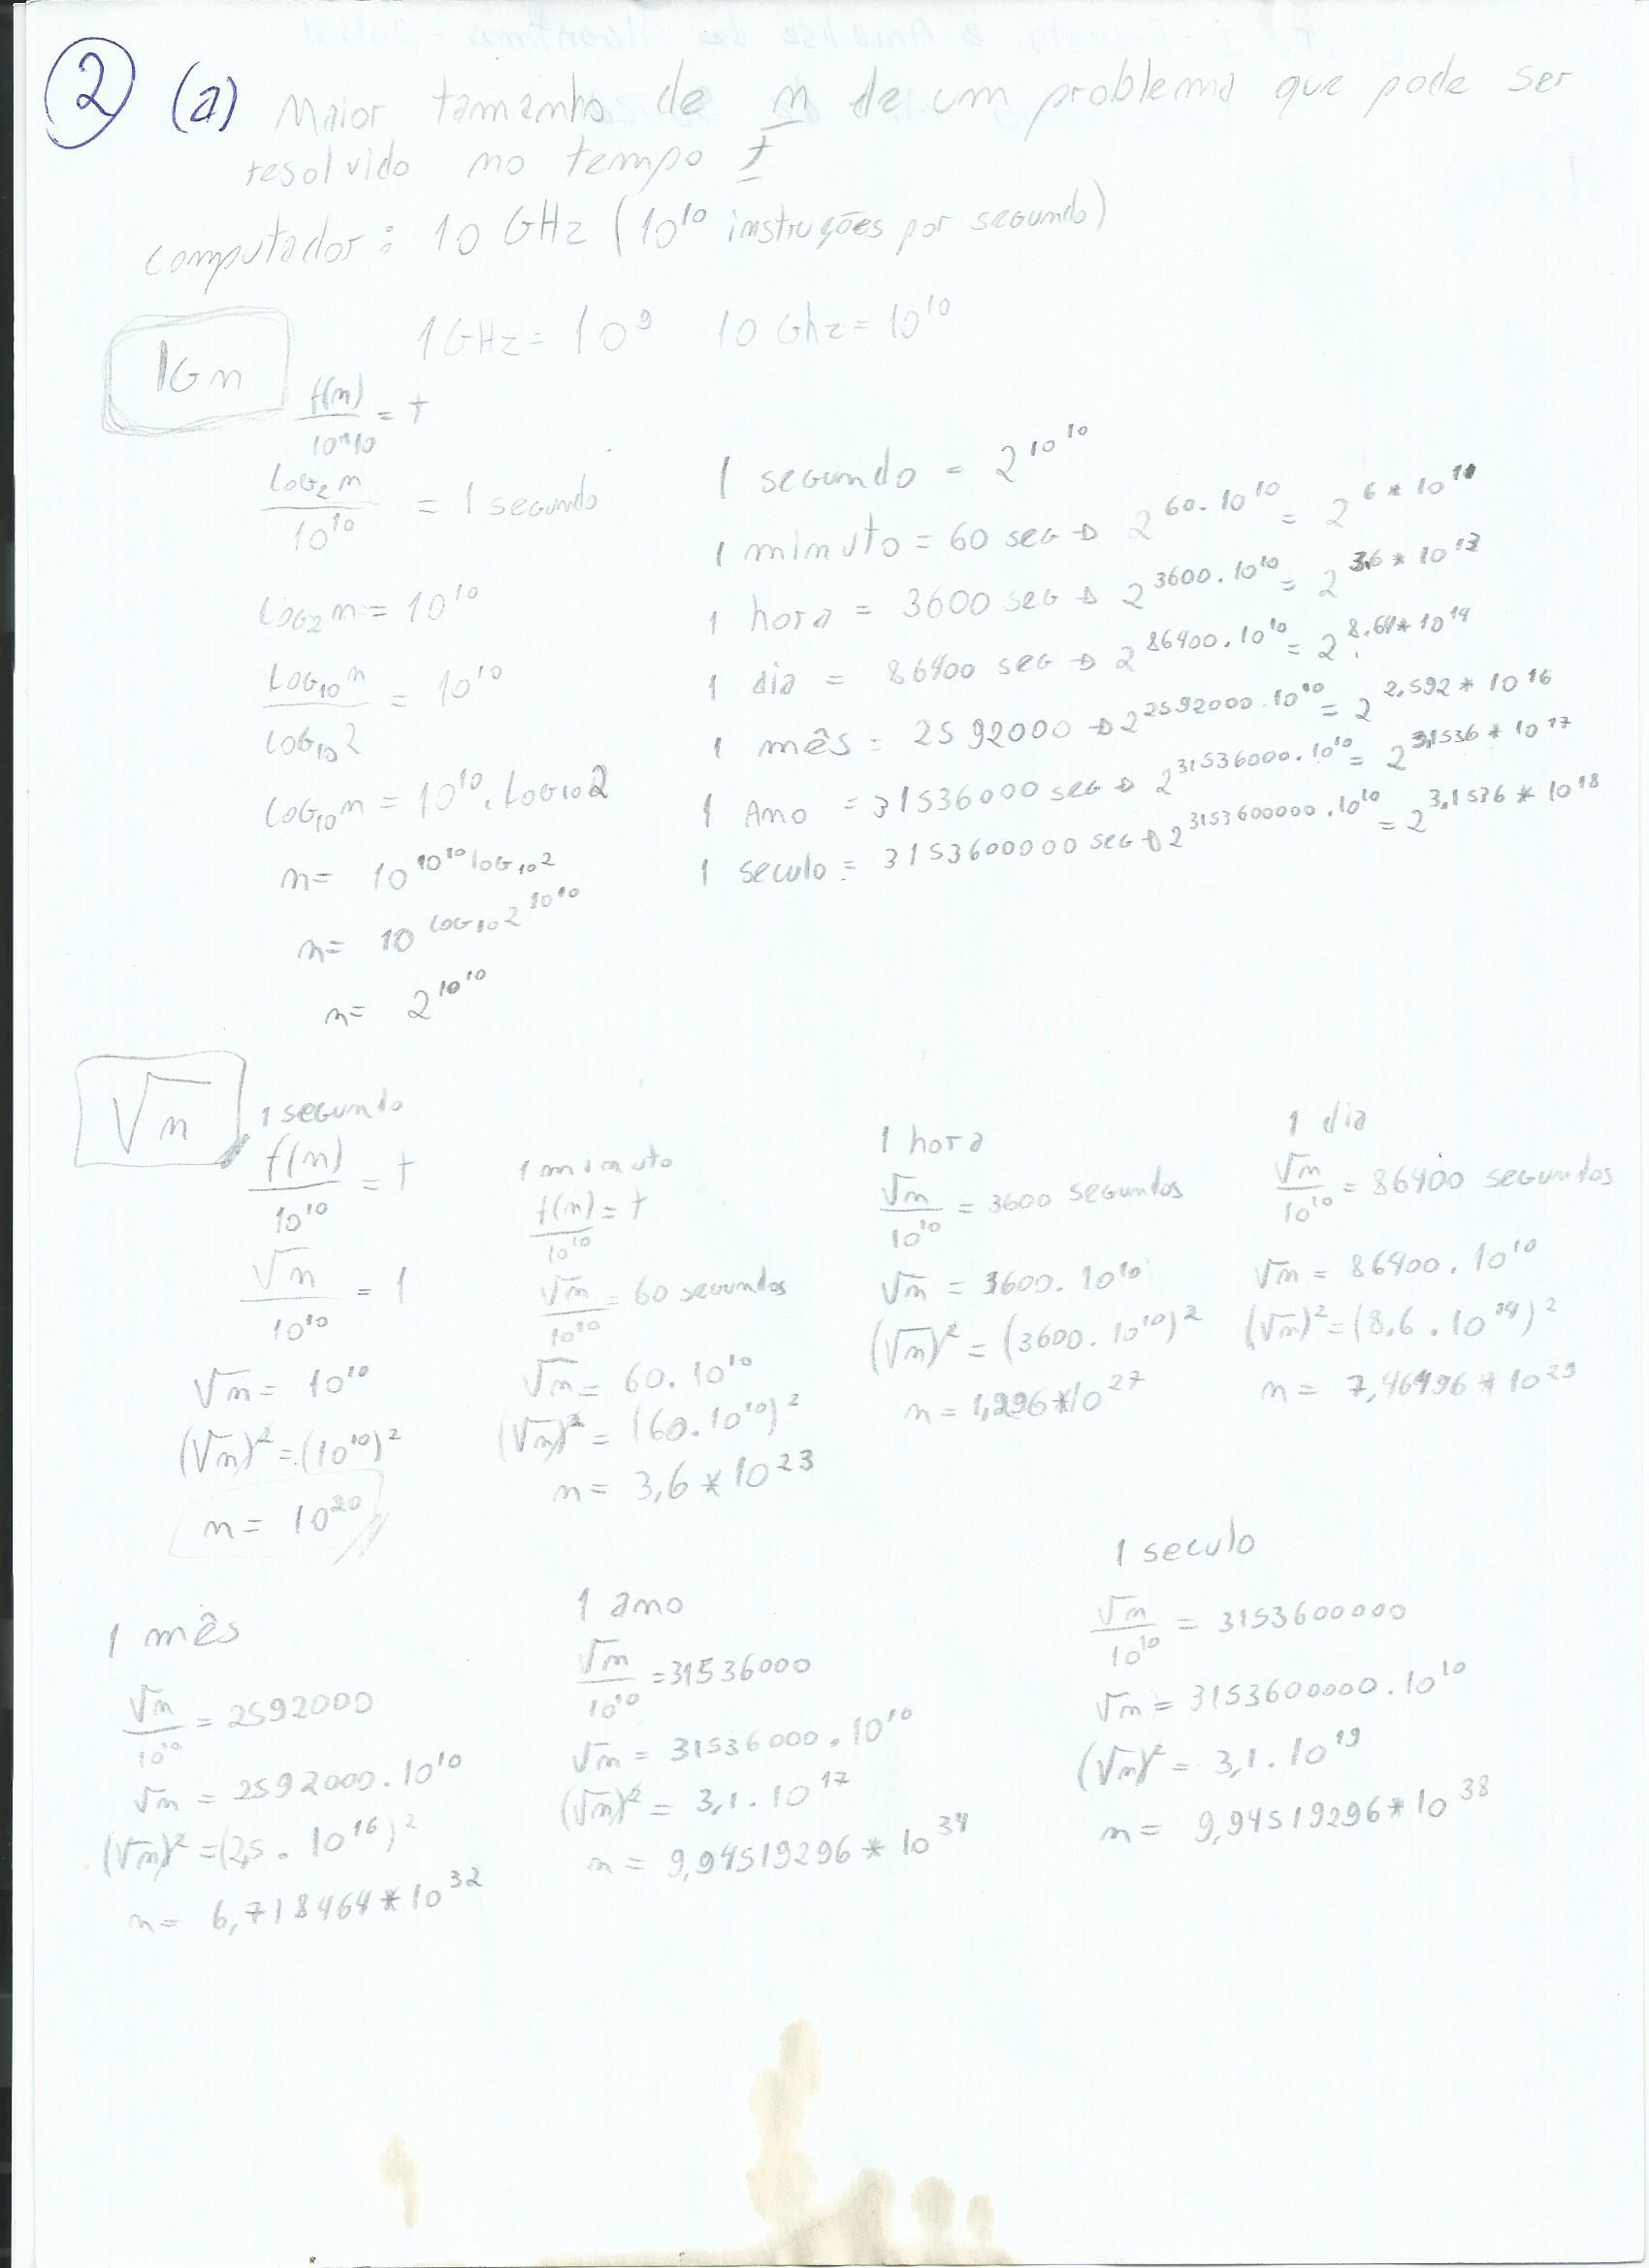 2 (a) Maior tamanho de n de um problema que pode ser
resolvido no tempo t
computador: 10 GHz (10^10 instruções por segundo)
1GHz = 10^9 10 Ghz = 10^10
lGn
f(n)/10^10 = t
Log2 n/10^10 = 1 segundo
Log2 n = 10^10
Log10 n/Log10 2 = 10^10
Log10 n = 10^10 . Log10 2
n = 10^(10^10 log10 2)
n = 10^(log10 2^(10^10))
n = 2^(10^10)
1 segundo = 2^(10^10)
1 minuto = 60 seg → 2^(60.10^10) = 2^(6*10^11)
1 hora = 3600 seg → 2^(3600.10^10) = 2^(3.6*10^13)
1 dia = 86400 seg → 2^(86400.10^10) = 2^(8.64*10^14)
1 mês = 2592000 → 2^(2592000.10^10) = 2^(2.592*10^16)
1 Ano = 31536000 seg → 2^(31536000.10^10) = 2^(3,1536*10^17)
1 seculo = 3153600000 seg → 2^(3153600000.10^10) = 2^(3,1536*10^18)
√n
1 segundo
f(n)/10^10 = t
√n/10^10 = 1
√n = 10^10
(√n)^2 = (10^10)^2
n = 10^20
1 minuto
f(n)/10^10 = t
√n/10^10 = 60 segundos
√n = 60.10^10
(√n)^2 = (60.10^10)^2
n = 3,6*10^23
1 hora
√n/10^10 = 3600 segundos
√n = 3600.10^10
(√n)^2 = (3600.10^10)^2
n = 1,296*10^27
1 dia
√n/10^10 = 86400 segundos
√n = 86400.10^10
(√n)^2 = (8,6.10^14)^2
n = 7,46496*10^29
1 mês
√n/10^10 = 2592000
√n = 2592000.10^10
(√n)^2 = (2,5.10^16)^2
n = 6,718464*10^32
1 ano
√n/10^10 = 31536000
√n = 31536000.10^10
(√n)^2 = 3,1.10^17
n = 9,94519296*10^34
1 seculo
√n/10^10 = 3153600000
√n = 3153600000.10^10
(√n)^2 = 3,1.10^19
n = 9,94519296*10^38